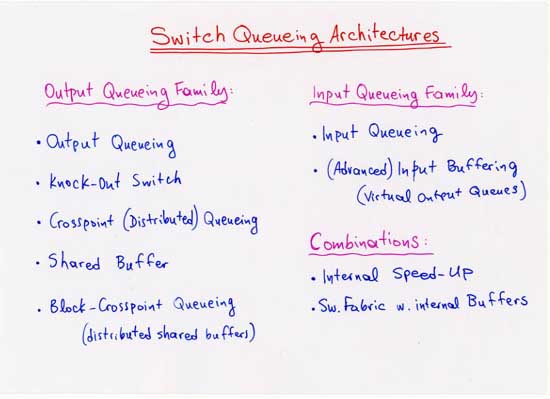 Switch Queueing Architectures
Output Queueing Family:
• Output Queueing
• Knock-Out Switch
• Crosspoint (Distributed) Queueing
• Shared Buffer
• Block-Crosspoint Queueing
(distributed shared buffers)
Input Queueing Family:
• Input Queueing
• (Advanced) Input Buffering
(Virtual Output Queues)
Combinations:
• Internal Speed-Up
• Sw. Fabric w. internal Buffers